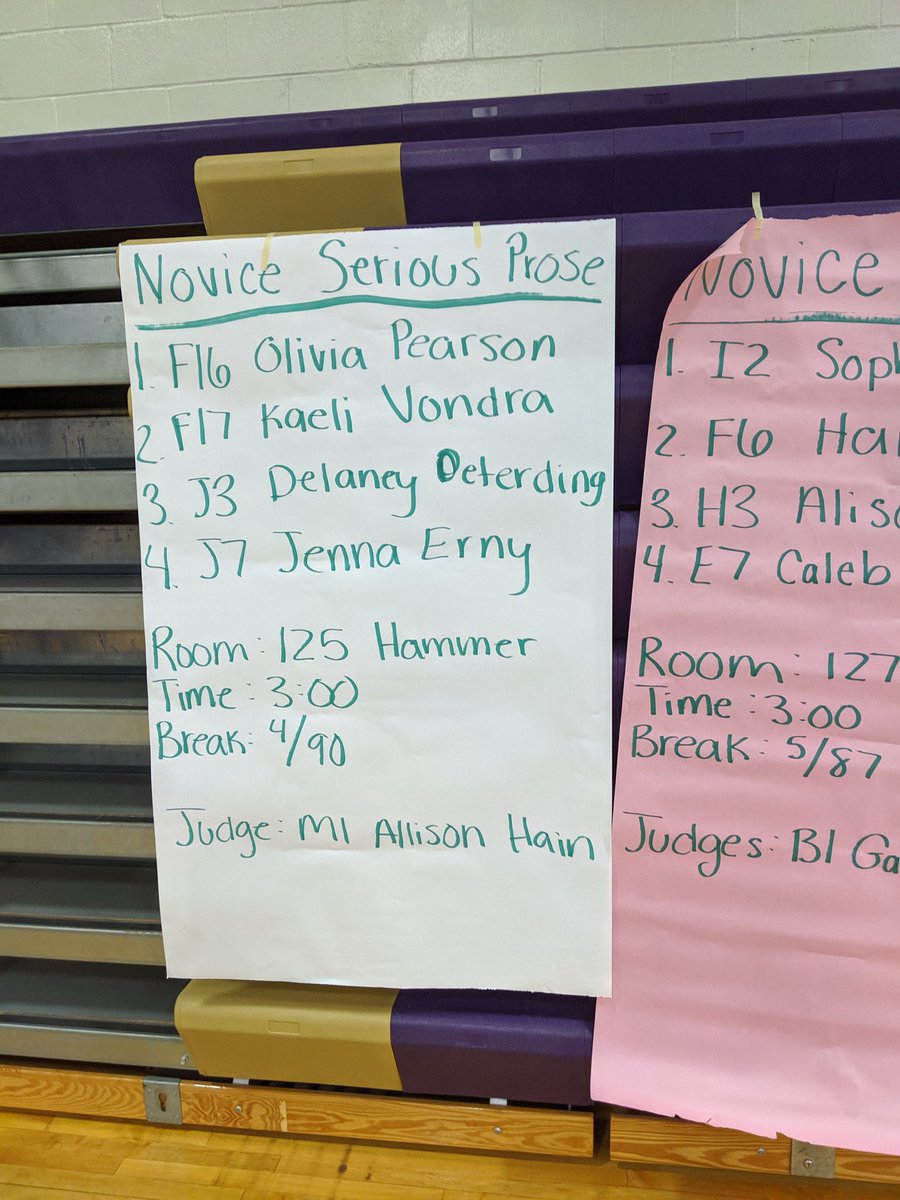 Novice Serious Prose
1. F16 Olivia Pearson
2. F17 Kaeli Vondra
3. J3 Delaney Deterding
4. J7 Jenna Erny
Room: 125 Hammer
Time: 3:00
Break: 4/90
Judge: M1 Allison Hain
Novice
1. I2 Soph
2. F6 Ha
3. H3 Aliso
4. E7 Caleb
Room: 127
Time: 3:00
Break: 5/87
Judges: B1 Ga